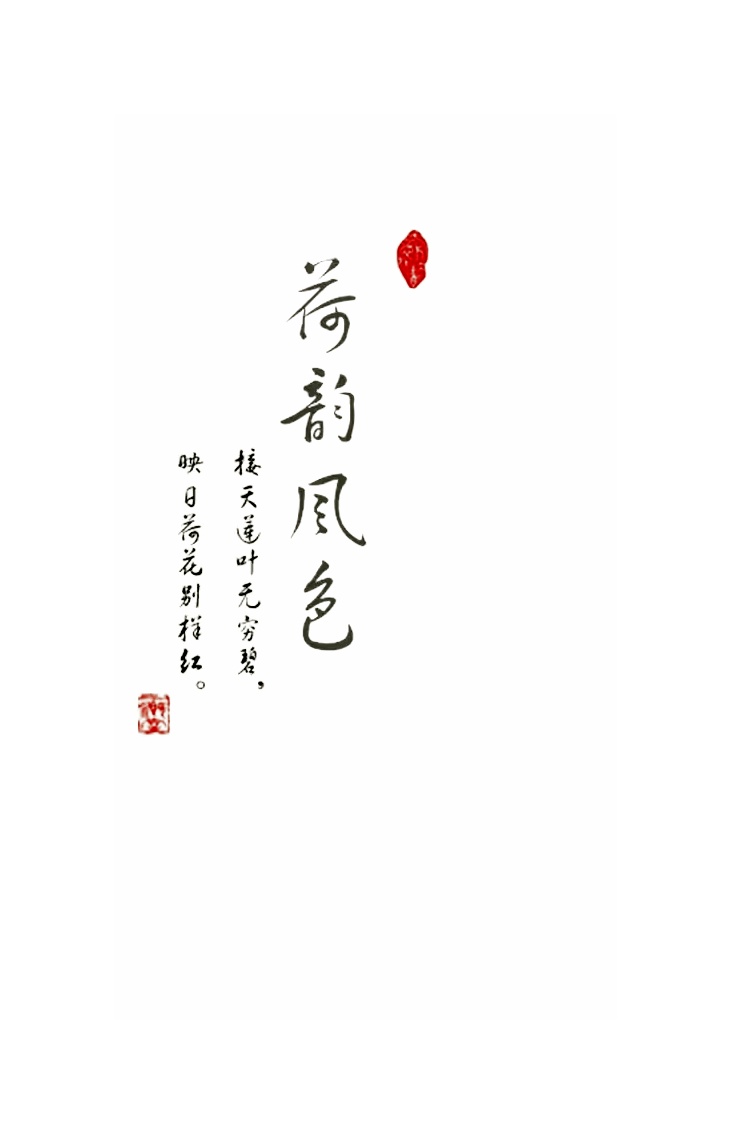 荷韵风色
接天莲叶无穷碧，
映日荷花别样红。